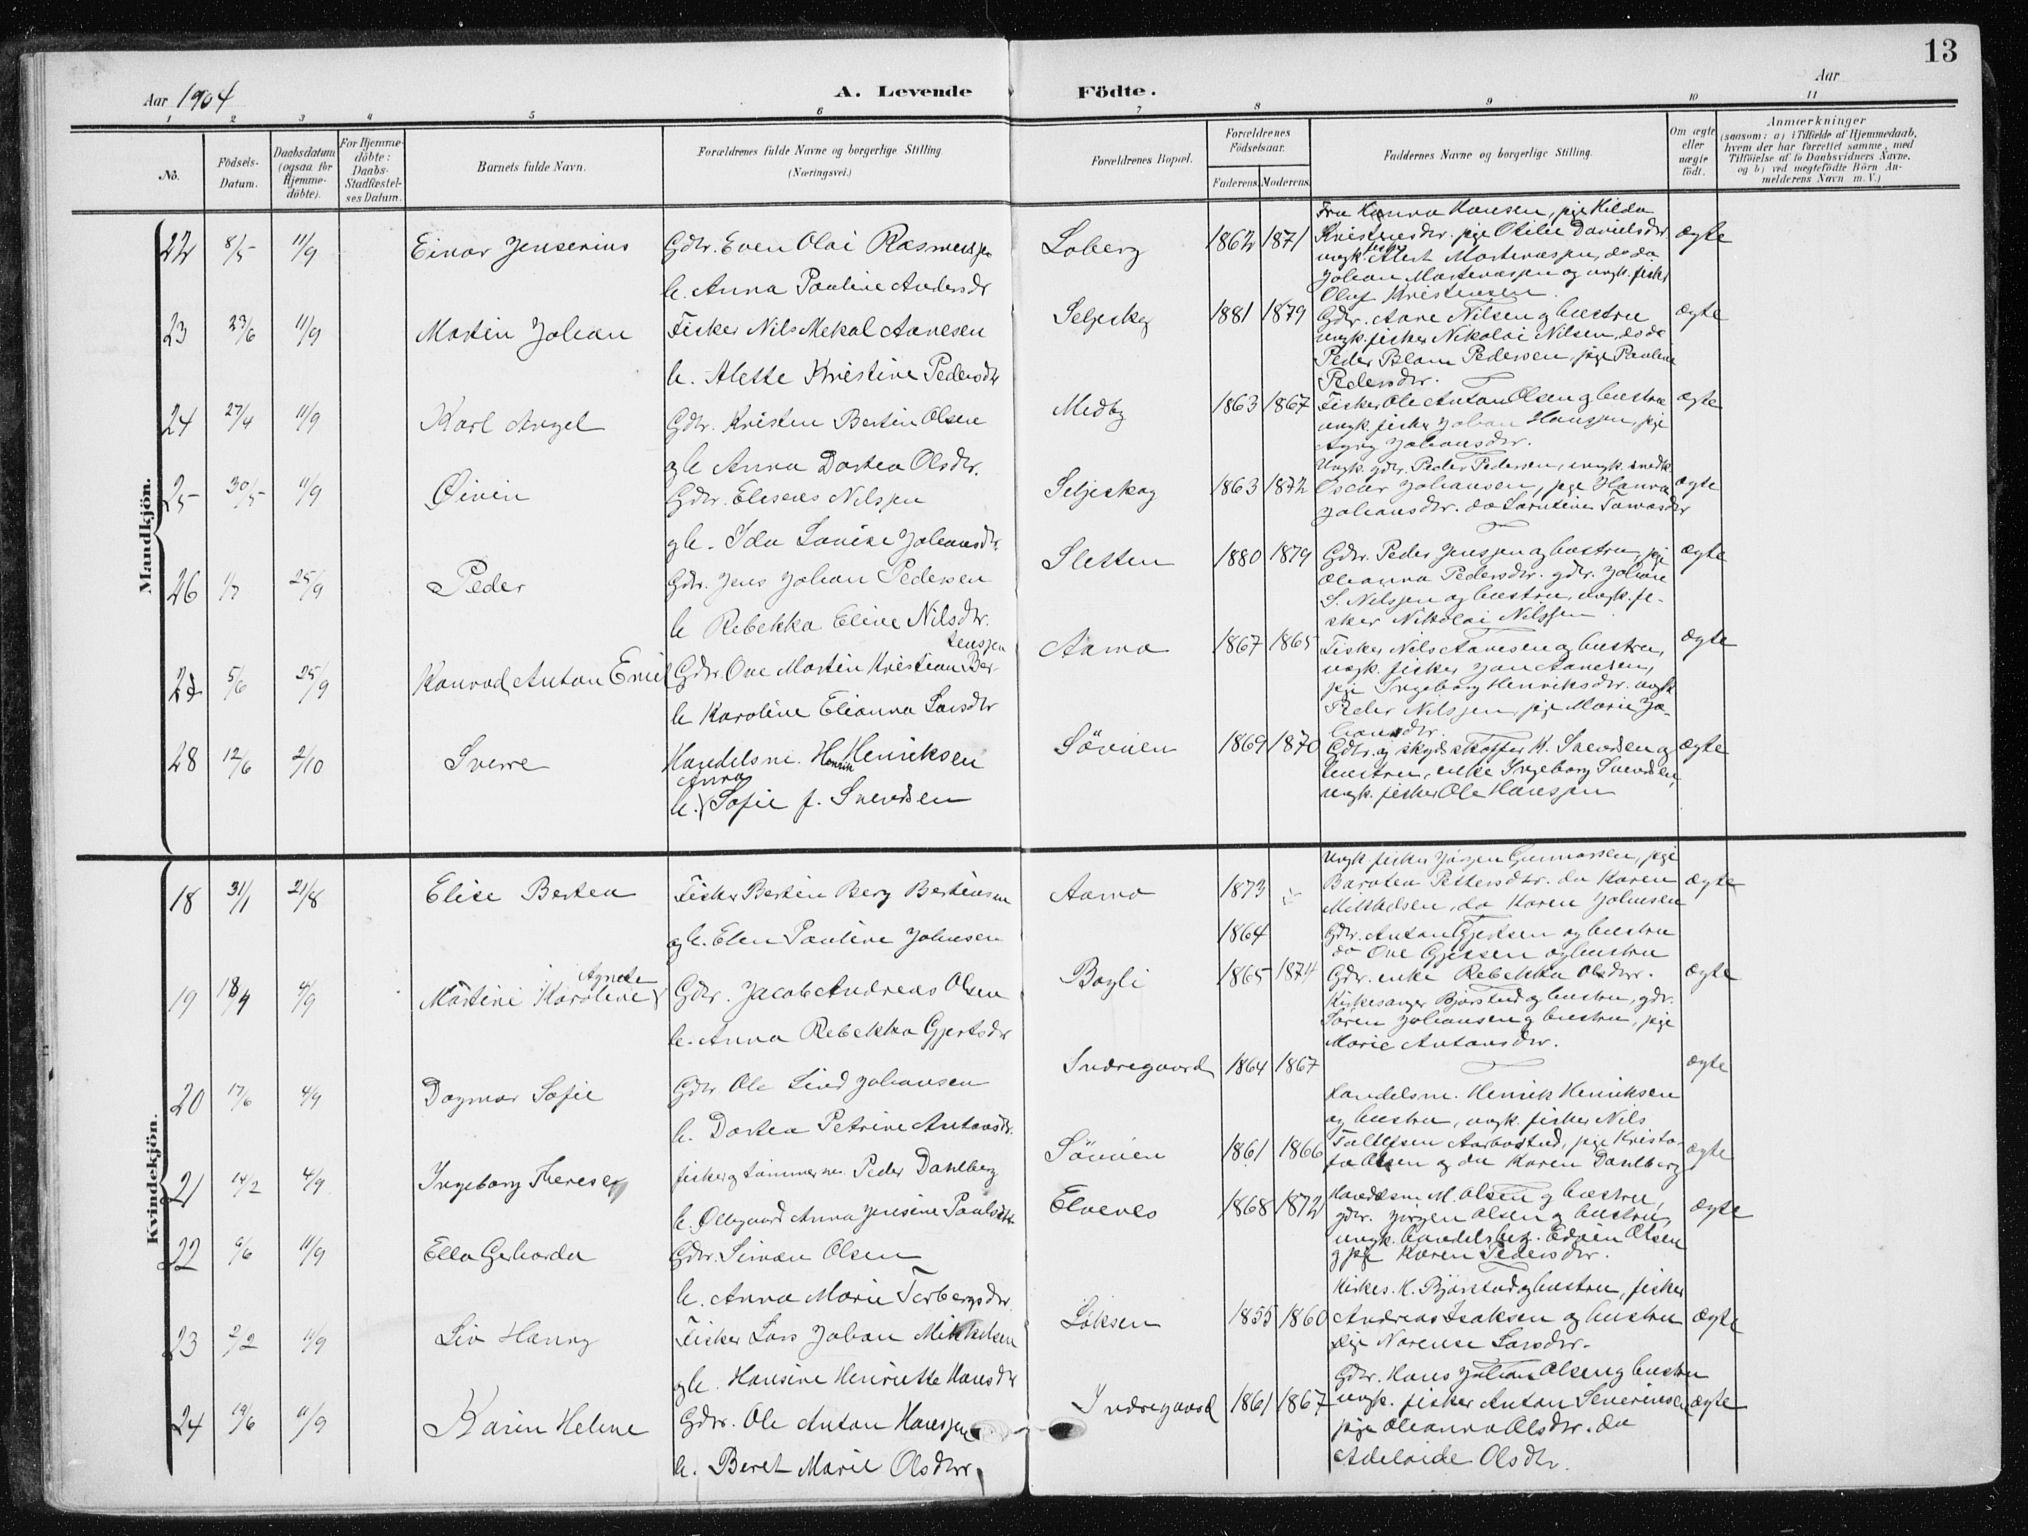 13
Aar 1904
A. Levende Födte.
Aar
1 2 3 4 5 6 7 8 9 10 11
No.
Födsels-Datum.
Daabsdatum (ogsaa for Hjemme-döbte).
For Hjemme-döbte: Daabs-Stadfæstel-ses Datum.
Barnets fulde Navn.
Forældrenes fulde Navne og borgerlige Stilling
(Næringsvei.)
Forældrenes Bopæl.
Forældrenes Födselsaar.
Faderens. Moderens.
Faddernes Navne og borgerlige Stilling.
Om ægte eller uægte födt.
Anmærkninger
(saasom: a) i Tilfælde af Hjemmedaab, hvem der har forrettet samme, med Tilföielse af to Daabsvidners Navne, og b) ved uægtefödte Börn An-melderens Navn m. V.)
Mandkjön.
22 8/5 11/9 Einar Jenserius Gdbr. Even Olai Rasmussen Loberg 1862 1871 ægte
h. Anna Pauline Andersdr
Fru Hansen, pige Hilda
Kristensdr. pige Otilie Danielsdr
ungk. Martinassen, do do
Johan Martinassen og ungk. fisk.
Oluf Kristensen.
23 23/6 11/9 Martin Johan Fisker Nils Mekal Aanesen Seljeskog 1881 1879 ægte
h. Alette Kristine Pedersdr
Gdbr. Aane Nilsen og hustru
ungk. fisker Nikolai Nilsen, do do
Peder Pedersen, pige Pauline
Pedersdr.
24 27/4 11/9 Karl Angel Gdbr. Kristen Bertin Olsen Medby 1863 1867 ægte
og h. Anna Dortea Olsdr.
Fisker Ole Anton Olsen og hustru
ungk. fisker Johan Hanssen, pige
Johansdr.
25 30/5 11/9 Öivin Gdbr. Eliseus Nilssen Seljeskog 1863 1872 ægte
og h. Ida Lovise Johansdr.
Ungk. gdbr. Peder Pedersen, ungk. snedk.
Oscar Johansen, pige Hanna
Johansdr. do
26 1/7 25/9 Peder Gdbr. Jens Johan Pedersen Sletten 1880 1879 ægte
h. Rebekka Eline Nilsdr.
Gdbr. Peder Jenssen og hustru, pige
Oleanna Pedersdr. gdbr. Johan
S. Nilssen og hustru, ungk. fi-
sker Nikolai Nilssen
27 5/6 25/9 Konrad Anton Emil Gdbr. Ove Martin Kristian Ber-
tenssen Aarno 1867 1865 ægte
h. Karoline Elianna Larsdr
Fisker Nils Aanesen og hustru,
ungk. fisker Jon Aanesen,
pige Ingeborg Henriksdr. ungk
Peder Nilssen, pige Marie Jo-
hansdr.
28 12/6 2/10 Sverre Handelsm. H. Henrik Henriksen Sövien 1869 1870 ægte
h. Anna Sofie f. Svendsen
Gdbr. og skydsskaffer K. Svendsen og
hustru, enke Ingeborg Svendsen,
ungk. fisker Ole Hanssen
Kvindekjön.
18 31/1 21/8 Elise Bertea Fisker Bertin Berg Bertinsen Aarno 1873 ægte
og h. Elen Pauline Johnsen 1864
Ungk. fisker Jörgen Gunnarsen, pige
Pettersdr. do Karen
Mikkelsen, do Karen Johnsen
19 18/4 4/9 Martine Karoline Agnete Gdbr. Jacob Andreas Olsen Bogli 1865 1874 ægte
h. Anna Rebekka Gjertsdr
Gdbr. Anton Gjertsen og hustru
do Ove Gjertsen og hustru
Gdbr. enke Rebekka Olsdr.
Kirkesanger Bjørstad og hustru, gdbr.
Sören Johansen og hustru, pige
Marie Antonsdr.
20 17/6 4/9 Dagmar Sofie Gdbr Ole Lind Johansen Indregaard 1864 1867 ægte
h. Dortea Petrine Antonsdr.
21 14/2 4/9 Ingeborg Therese fisker og tömmerm. Peder Dahlberg Sövien 1861 1866 ægte
h. Ollegaard Anna Jensine Paulsdtr
Handelsm. Henrik Henriksen
og hustru, ungk. fisker Nils
Aarbostad, pige Krista-
Olsen og do Karen Dahlberg
22 6/6 11/9 Ella Gerharda Gdbr. Simon Olsen Elvenes 1868 1872 ægte
h. Anna Marie Torbergsdr.
Handelsm M. Olsen og hustru,
gdbr. Jörgen Olsen og hustru,
ungk. handelsbetj. Edvin Olsen
og pige Karen Pedersdr.
23 2/2 11/9 Liv Hanny Fisker Lars Johan Mikkelsen Löksen 1855 1860 ægte
og h. Hansine Henriette Hansdr
Kirkes. K. Bjørstad og hustru, fisker
Andreas Isaksen og hustru
pige Larsdr.
24 19/6 11/9 Karin Helene Gdbr. Ole Anton Hanssen Indregaard 1861 1867 ægte
h. Beret Marie Olsdtr
Gdbr. Hans Johan Olsen og hustru
ungk. fisker Anton Severinsen
pige Oleanna Olsdr. do
Adelaide Olsdr.